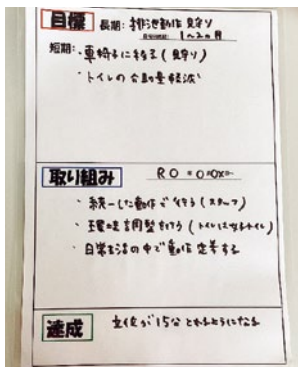 目標 長期: 排泄動作 見守り
1~2ヶ月
短期: ・車椅子に移る(見守り)
・トイレの介助量軽減
取り組み
・統一した動作で行う(スタッフ)
・環境調整を行う(トイレは女子トイレ)
・日常生活の中で動作定着する
達成 立位が15分とれるようになる